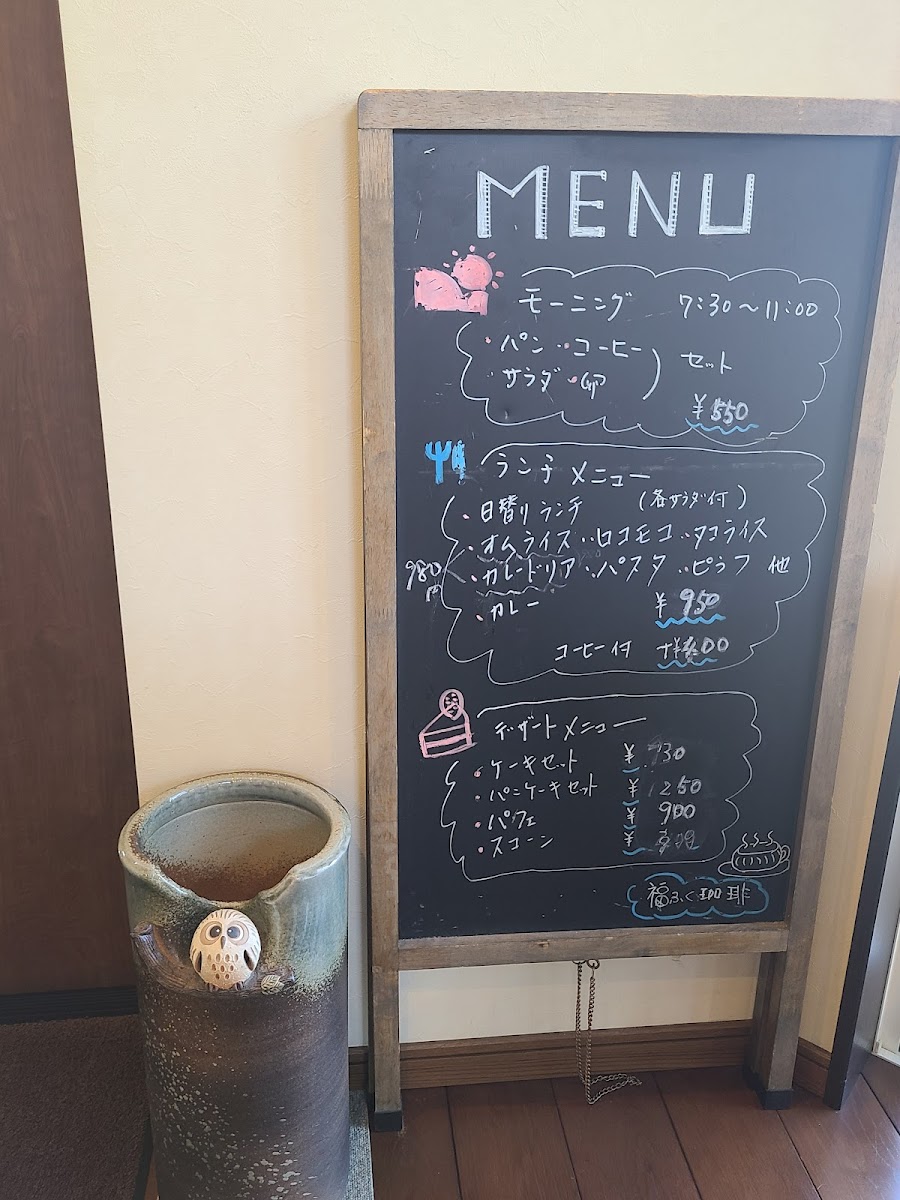 MENU
モーニング 7:30～11:00
・パン ・コーヒー
・サラダ ・卵 ) セット
¥550
ランチメニュー
・日替りランチ (各サラダ付)
・オムライス ・ロコモコ ・タコライス
980円 ・カレードリア ・パスタ ・ピラフ 他
・カレー ¥950
コーヒー付 +¥00
デザートメニュー
・ケーキセット ¥730
・パンケーキセット ¥1250
・パフェ ¥900
・スコーン ¥
福ふく珈琲